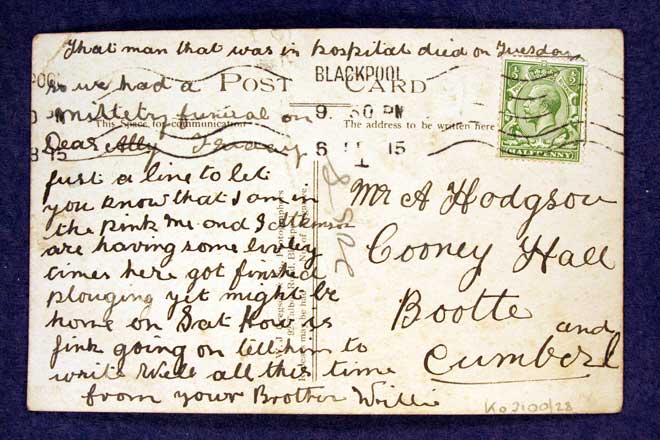 That man that was in hospital died on Tuesday
so we had a
milletry funeral on
Dear Ally
POST CARD
This Space for communication
The address to be written here
BLACKPOOL
9. 30 PM
15
HALFPENNY
Just a line to let
you know that I am in
the pink me and J atkinson
are having some livley
times here got finshed
plouging yet might be
home on Sat How is
fink going on tell him to
write Well all this time
from your Brother Willie
Mr A Hodgson
Cooney Hall
Bootte
Cumberland
2015-8
Ko2100/28